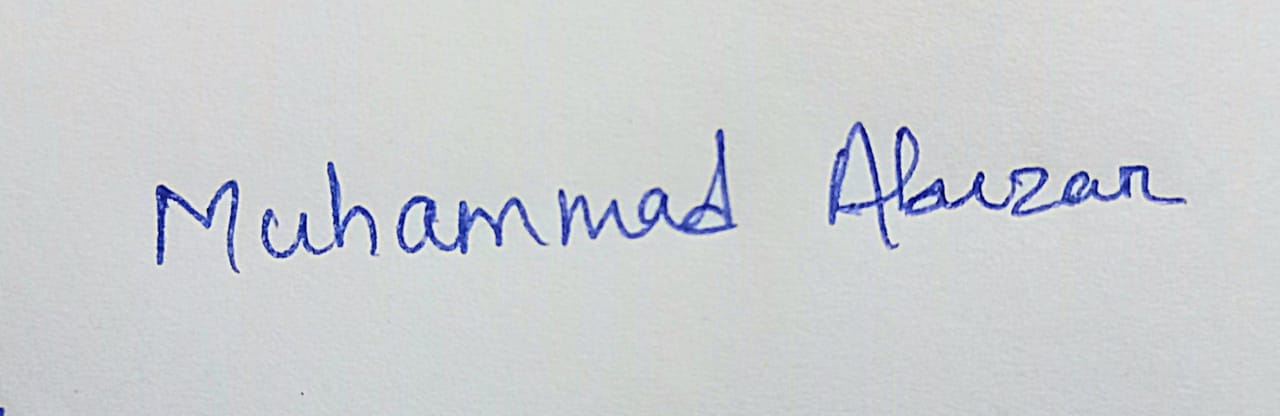 Muhammad Abuzar